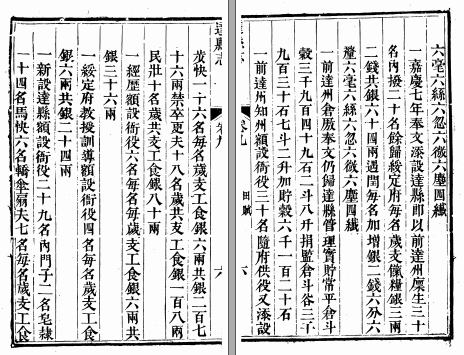 六毫六絲六忽六微六塵四纖
一嘉慶七年奉文添設達縣即以前達州廩生三十
名內撥二十名餘歸綏定府每名歲支餼糧銀三兩
二錢共銀六十四兩遇閏每名加增銀二錢六分六
釐六毫六絲六忽六微六塵四纖
一前達州倉厫奉文仍歸達縣管理實貯常平倉斗
穀三千九百四十九石二斗八升捐監倉斗谷三千
九百三十石七斗二升加貯穀六千一百二十石
一前達州知州額設衙役三十名隨府供役又添設
卷九 田賦 六
達縣志 卷九 六
步快一十六名每名歲支工食銀六兩共銀二百七
十六兩禁卒更夫十八名歲共支工食銀一百八兩
民壯十名歲共支工食銀八十兩
一經歷額設衙役六名每名歲支工食銀六兩共
銀三十六兩
一綏定府教授訓導額設衙役四名每名歲支工食
銀六兩共銀二十四兩
一新設達縣額設衙役二十九名內門子二名皂隸
一十四名馬快六名轎傘扇夫七名每名歲支工食